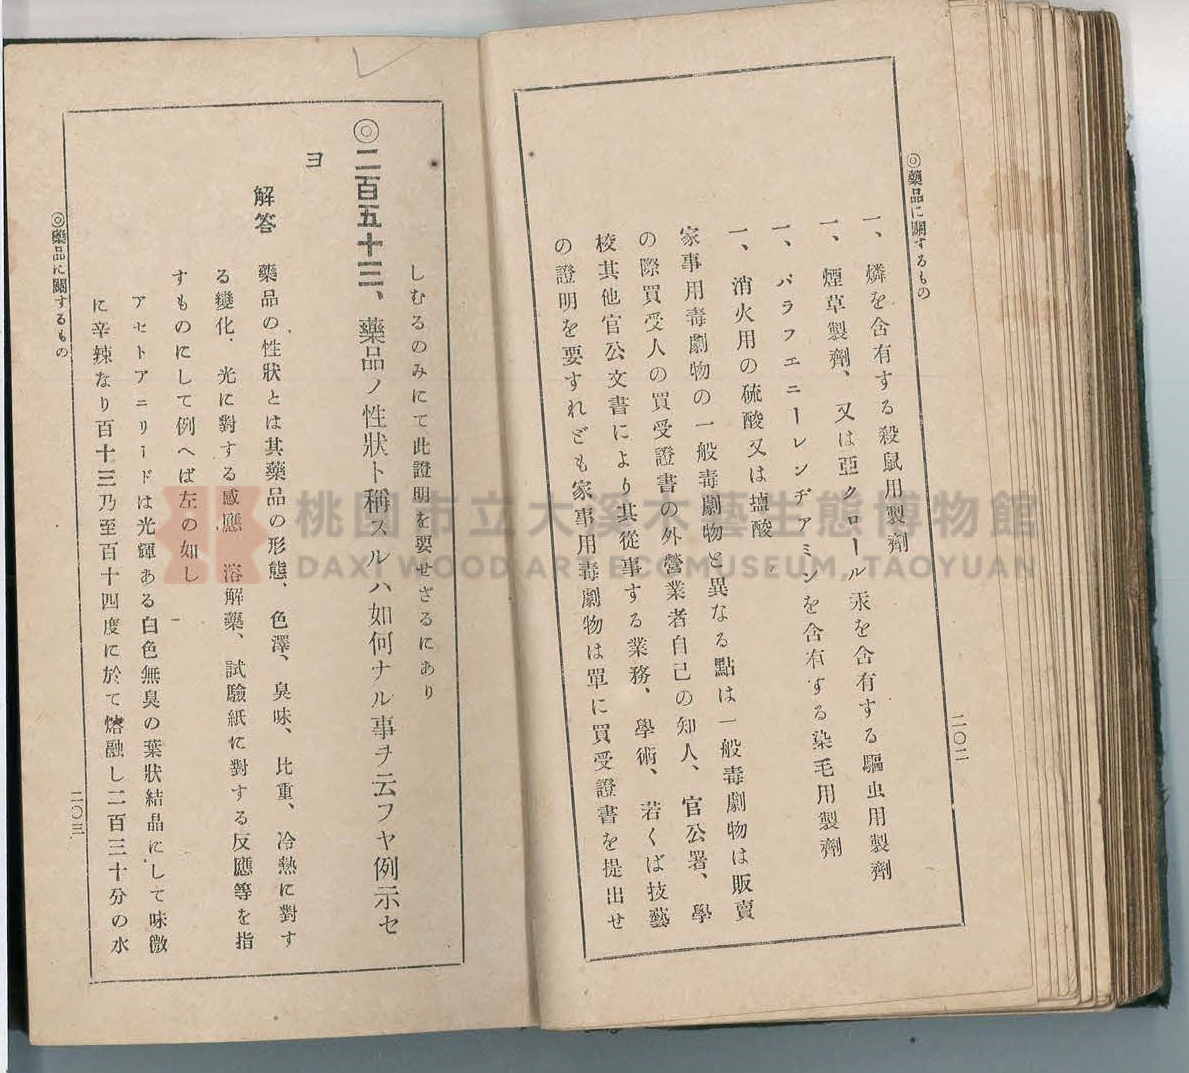 ◎藥品に關するもの
二〇二
一、燐を含有する殺鼠用製劑
一、煙草製劑、又は亞クロール汞を含有する驅虫用製劑
一、パラフエニーレンヂアミンを含有する染毛用製劑
一、消火用の硫酸又は塩酸
家事用毒劇物の一般毒劇物と異なる點は一般毒劇物は販賣
の際買受人の買受證書の外營業者自己の知人、官公署、學
校其他官公文書により其從事する業務、學術、若くば技藝
の證明を要すれども家事用毒劇物は單に買受證書を提出せ
しむるのみにて此證明を要せざるにあり
◎二百五十三、藥品ノ性狀ト稱スルハ如何ナル事ヲ云フヤ例示セ
ヨ
解答 藥品の性狀とは其藥品の形態、色澤、臭味、比重、冷熱に對す
る變化、光に對する感應 溶解藥、試驗紙に對する反應等を指
すものにして例へば左の如し
アセトアニリードは光輝ある白色無臭の葉狀結晶にして味微
に辛辣なり百十三乃至百十四度に於て熔融し二百三十分の水
◎藥品に關するもの
二〇三
桃園市立大溪木藝生態博物館
DAXI WOOD ART ECOMUSEUM, TAOYUAN